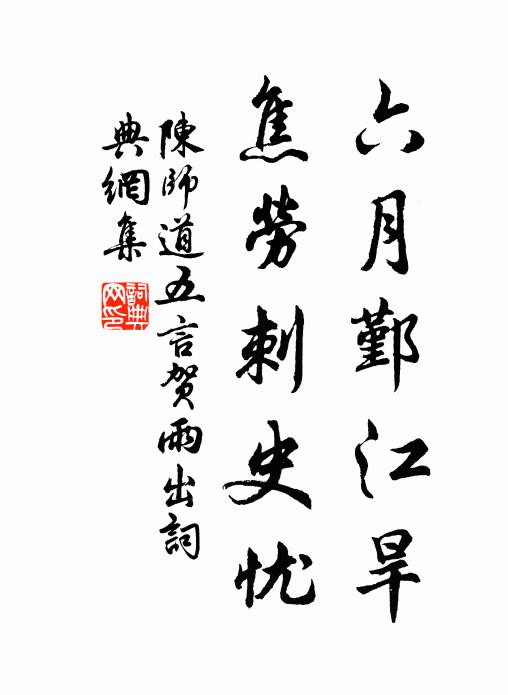 六月鄞江旱
焦勞刺史忧
陳師道五言贺雨出詞
典網集
詞典网印